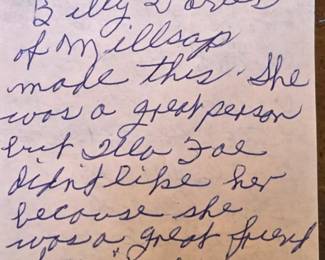 Billy
of Millsap
made this. She
was a great person
but Illa Fae
didnt like her
because she
was a great friend